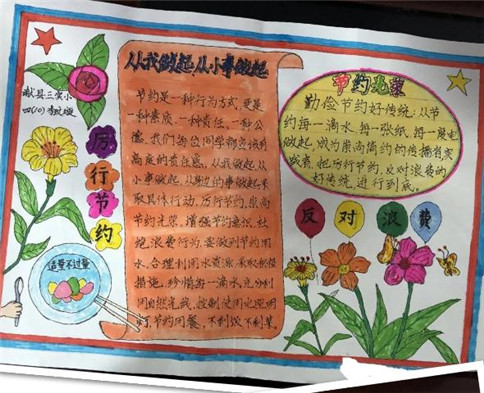 从我做起从小事做起
献县三实小
四(10)
厉行节约
适量不过量
节约是一种行为方式,更是
一种素质、一种责任、一种公
德。我们每位同学都应该有
高度的责任感。从我做起,从
小事做起,从身边的事做起,采
取具体行动,厉行节约,崇尚
节约光荣,增强节约意识,杜
绝浪费行为,要做到节约用
水,合理利用水资源,采取积极
措施,珍惜每一滴水,充分利
用自然光线,控制使用电源用
灯,节约用餐,不剩饭不剩菜。
节约光荣
勤俭节约好传统:从节
约每一滴水、每一张纸、每一度电
做起,成为崇尚简约的传播者实
践者,把厉行节约、反对浪费的
好传统,进行到底。
反对浪费